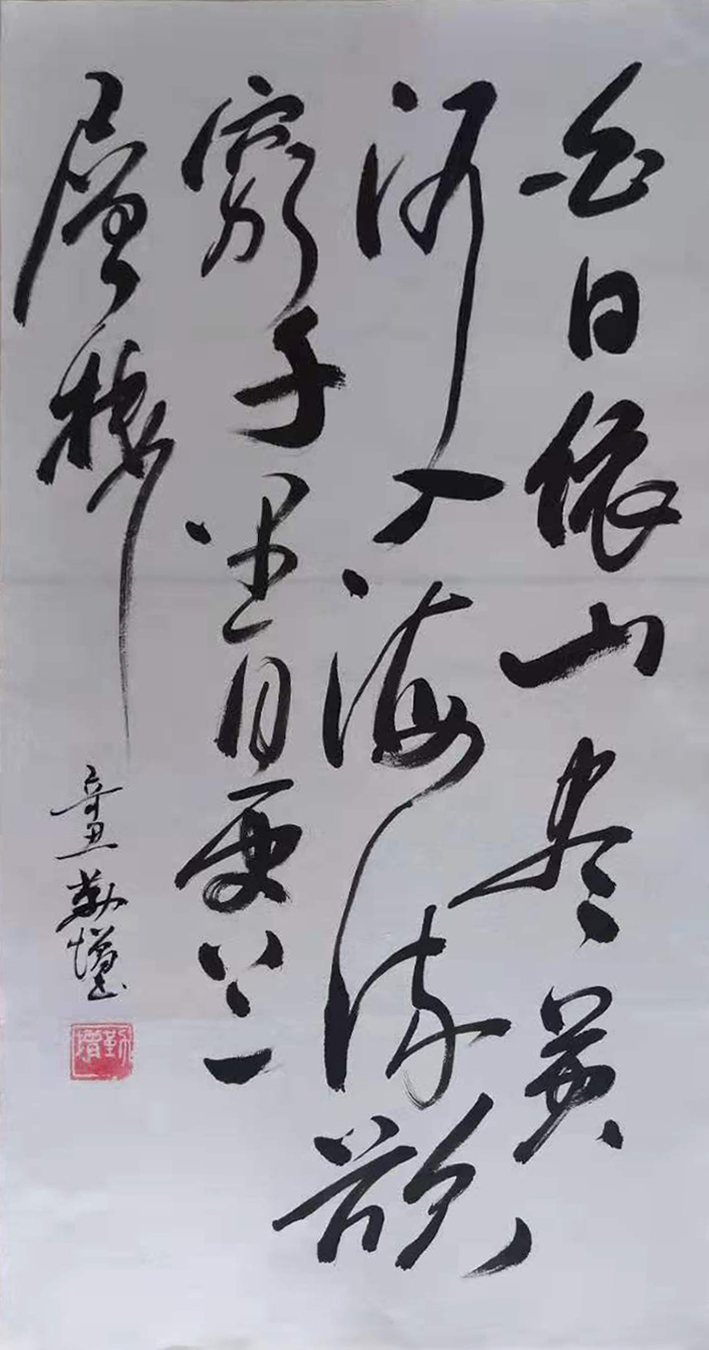 白日依山尽黄
河入海流欲
窮千里目更上一
層樓
辛丑勤增书
勤增